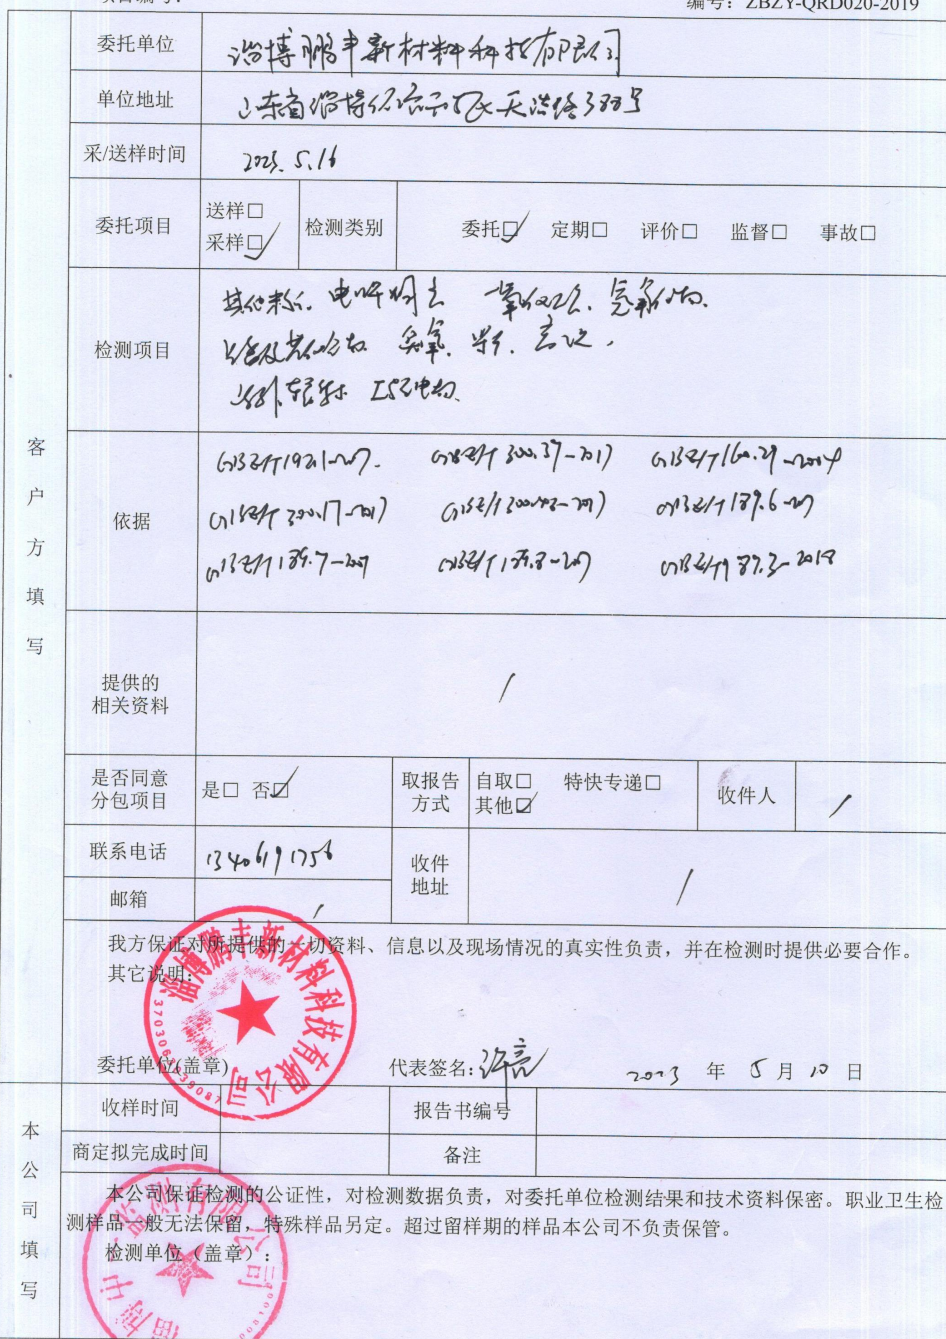 编号：ZBZY-QRD020-2019
委托单位 淄博鹏丰新材料科技有限公司
单位地址 山东省淄博 388号
采/送样时间 2023.5.16
委托项目 送样□ 采样☑ 检测类别 委托☑ 定期□ 评价□ 监督□ 事故□
检测项目 其他粉尘、电焊烟尘 一氧化碳、氮氧化物、
臭氧、噪声、高温、
紫外辐射 工频电场、
客户方填写
依据 GBZ/T192.1-2007、 GBZ/T300.37-2017 GBZ/T160.29-2004
GBZ/T300.17-2017 GBZ/T189.6-2007
GBZ/T189.7-2007 GBZ/T189.8-2007 GBZ/T189.3-2018
提供的相关资料 /
是否同意分包项目 是□ 否☑ 取报告方式 自取□ 特快专递□ 其他☑ 收件人 /
联系电话 13406191756 收件地址 /
邮箱 /
我方保证对所提供的一切资料、信息以及现场情况的真实性负责，并在检测时提供必要合作。
其它说明：
淄博鹏丰新材料科技有限公司
委托单位(盖章) 代表签名：许亮 2023 年 5 月 10 日
本公司填写
收样时间 报告书编号
商定拟完成时间 备注
本公司保证检测的公证性，对检测数据负责，对委托单位检测结果和技术资料保密。职业卫生检
测样品一般无法保留，特殊样品另定。超过留样期的样品本公司不负责保管。
检测单位（盖章）：